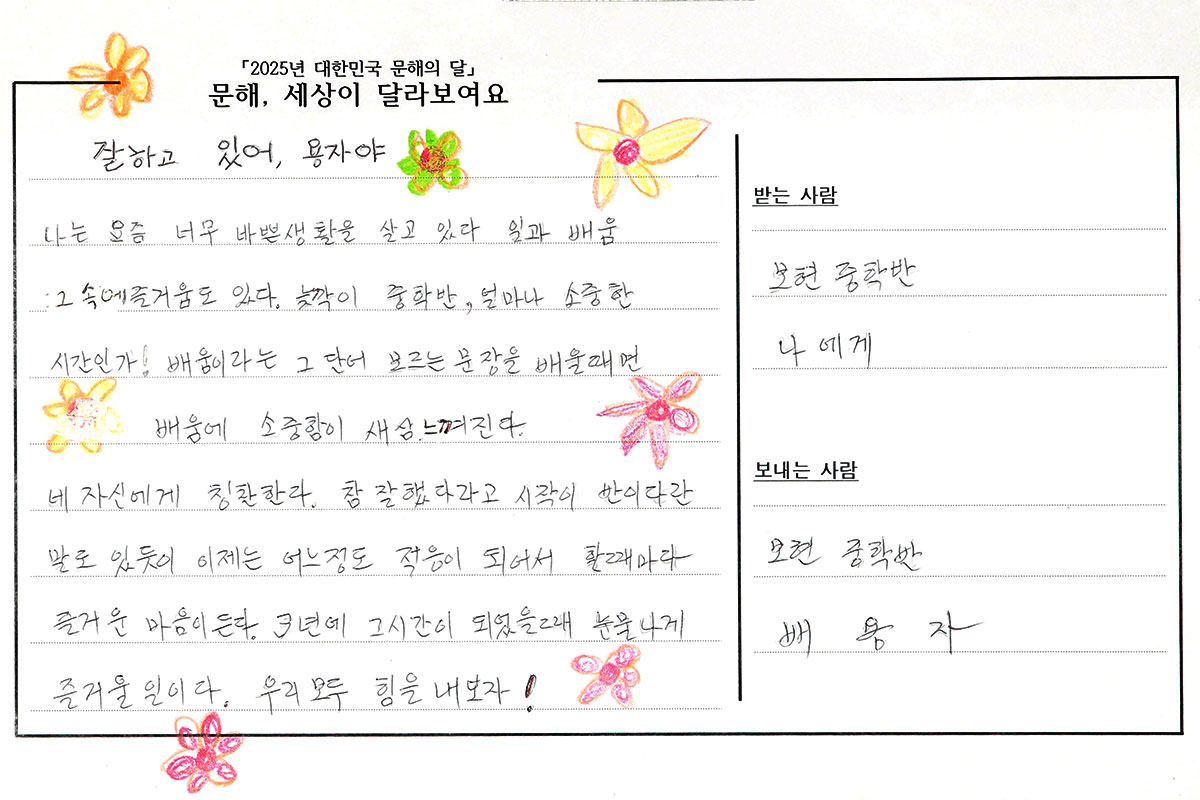 「2025년 대한민국 문해의 달」
문해, 세상이 달라보여요
잘하고 있어, 용자야
나는 요즘 너무 바쁜생활을 살고 있다 일과 배움
그 속에즐거움도 있다. 늦깍이 중학반, 얼마나 소중한
시간인가! 배움이라는 그 단어 모르는 문장을 배울때면
배움에 소중함이 새삼 느껴진다.
네 자신에게 칭찬한다. 참 잘했다라고 시작이 반이다란
말도 있듯이 이제는 어느정도 적응이 되어서 할때마다
즐거운 마음이 든다. 3년에 그시간이 되었을때 눈물나게
즐거울 일이다. 우리 모두 힘을 내보자!
받는 사람
보현 중학반
나 에게
보내는 사람
보현 중학반
배 용 자